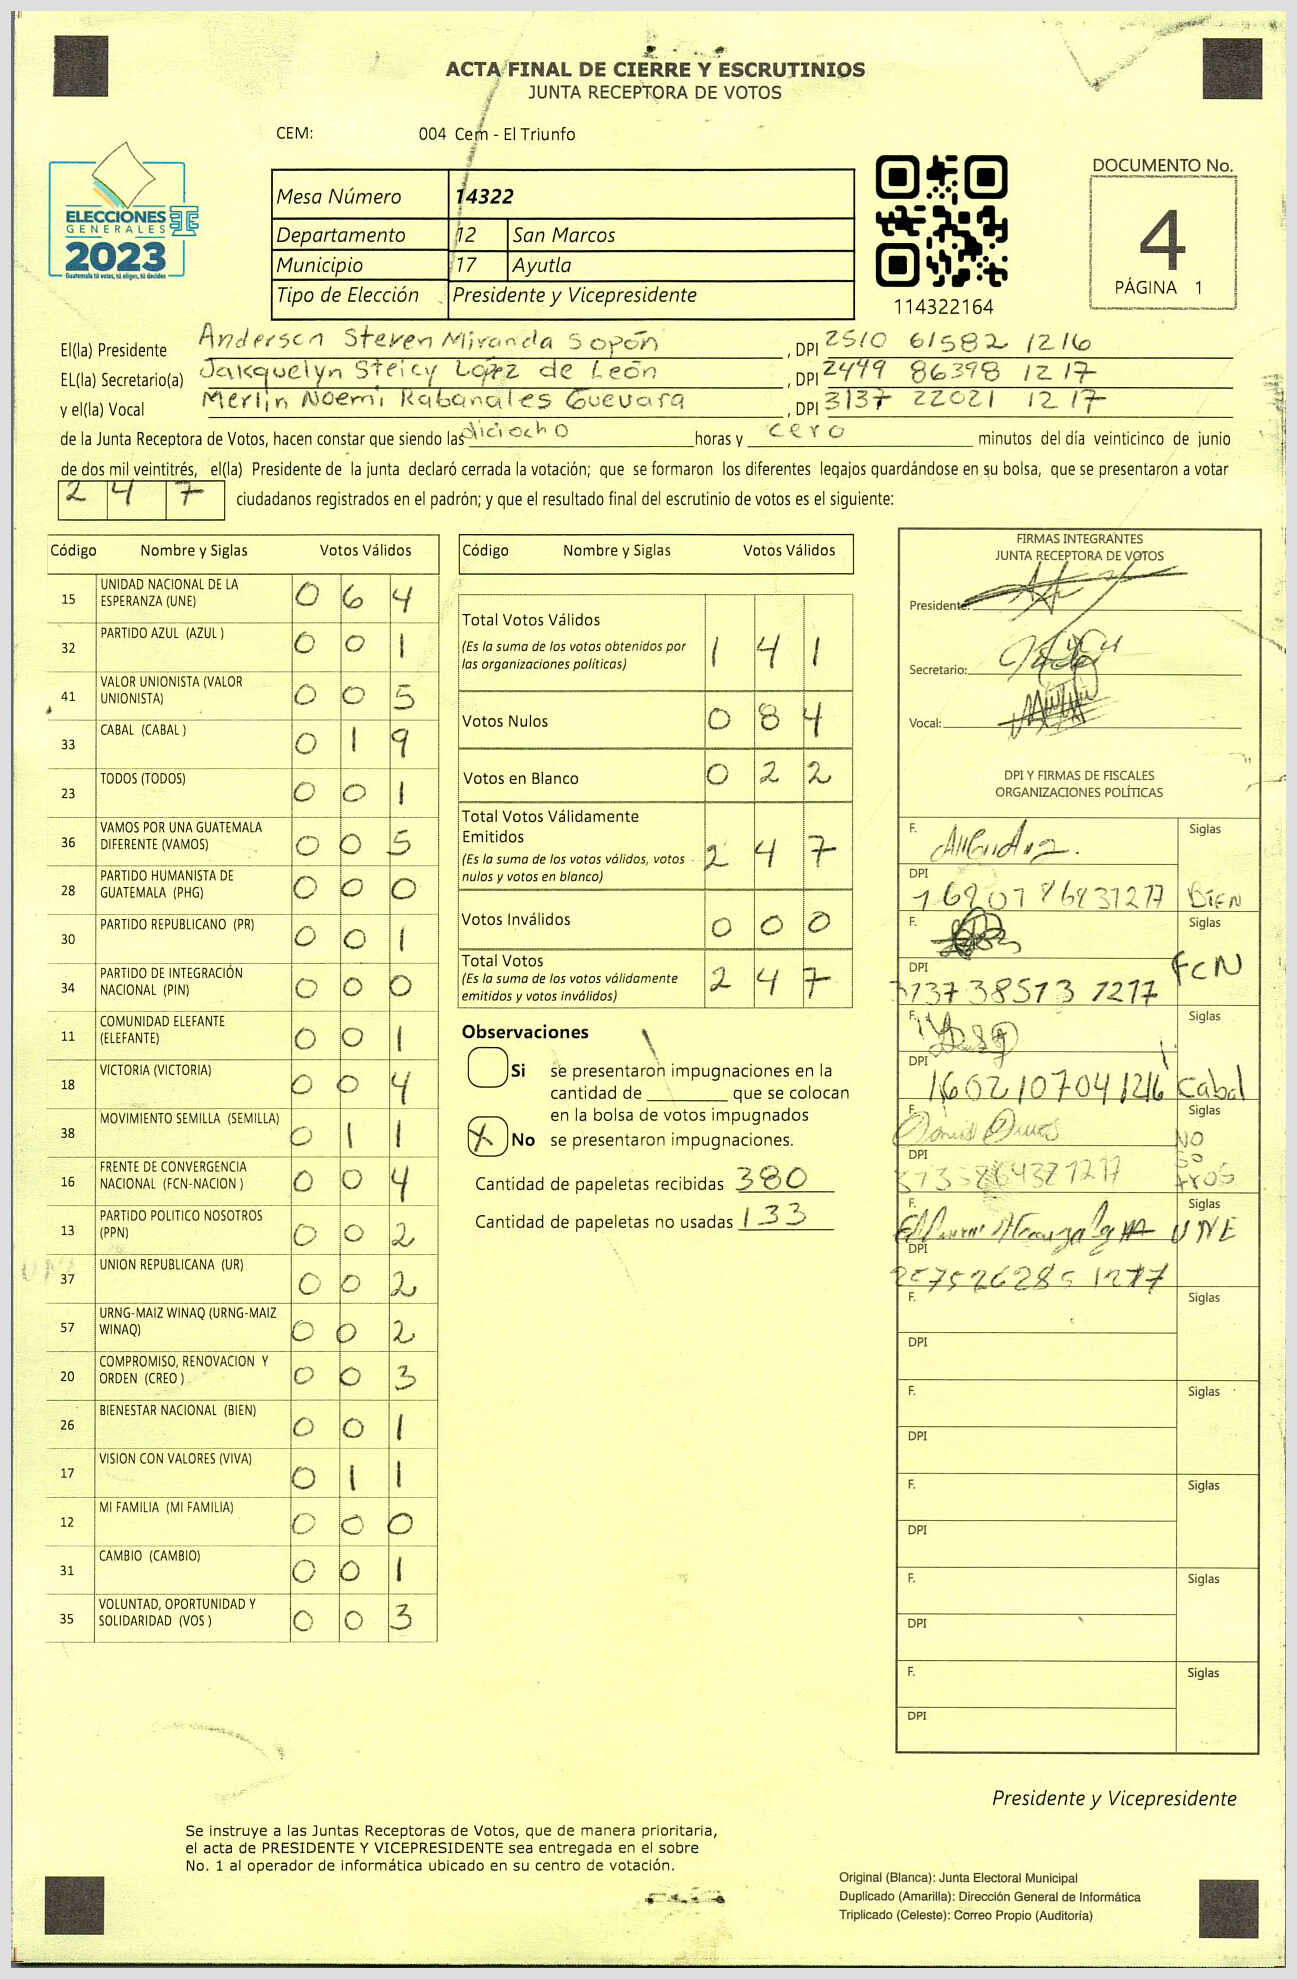 ACTA FINAL DE CIERRE Y ESCRUTINIOS
JUNTA RECEPTORA DE VOTOS
CEM: 004 Cem - El Triunfo
ELECCIONES
GENERALES
2023
Guatemala tú votas, tú eliges, tú decides
Mesa Número 14322
Departamento 12 San Marcos
Municipio 17 Ayutla
Tipo de Elección Presidente y Vicepresidente
114322164
DOCUMENTO No.
4
PÁGINA 1
El(la) Presidente Anderson Steven Miranda Sopón, DPI 2510 61582 1216
EL(la) Secretario(a) Jakquelyn Steicy López de León, DPI 2449 86398 1217
y el(la) Vocal Merlin Noemi Rabanales Guevara, DPI 3137 22021 1217
de la Junta Receptora de Votos, hacen constar que siendo las diciocho horas y cero minutos del día veinticinco de junio
de dos mil veintitrés, el(la) Presidente de la junta declaró cerrada la votación; que se formaron los diferentes legajos quardándose en su bolsa, que se presentaron a votar
247 ciudadanos registrados en el padrón; y que el resultado final del escrutinio de votos es el siguiente:
Código Nombre y Siglas Votos Válidos
15 UNIDAD NACIONAL DE LA ESPERANZA (UNE) 064
32 PARTIDO AZUL (AZUL ) 001
41 VALOR UNIONISTA (VALOR UNIONISTA) 005
33 CABAL (CABAL ) 019
23 TODOS (TODOS) 001
36 VAMOS POR UNA GUATEMALA DIFERENTE (VAMOS) 005
28 PARTIDO HUMANISTA DE GUATEMALA (PHG) 000
30 PARTIDO REPUBLICANO (PR) 001
34 PARTIDO DE INTEGRACIÓN NACIONAL (PIN) 000
11 COMUNIDAD ELEFANTE (ELEFANTE) 001
18 VICTORIA (VICTORIA) 004
38 MOVIMIENTO SEMILLA (SEMILLA) 011
16 FRENTE DE CONVERGENCIA NACIONAL (FCN-NACION ) 004
13 PARTIDO POLITICO NOSOTROS (PPN) 002
37 UNION REPUBLICANA (UR) 002
57 URNG-MAIZ WINAQ (URNG-MAIZ WINAQ) 002
20 COMPROMISO, RENOVACION Y ORDEN (CREO ) 003
26 BIENESTAR NACIONAL (BIEN) 001
17 VISION CON VALORES (VIVA) 011
12 MI FAMILIA (MI FAMILIA) 000
31 CAMBIO (CAMBIO) 001
35 VOLUNTAD, OPORTUNIDAD Y SOLIDARIDAD (VOS ) 003
Código Nombre y Siglas Votos Válidos
Total Votos Válidos 141
(Es la suma de los votos obtenidos por
las organizaciones políticas)
Votos Nulos 084
Votos en Blanco 022
Total Votos Válidamente
Emitidos 247
(Es la suma de los votos válidos, votos
nulos y votos en blanco)
Votos Inválidos 000
Total Votos 247
(Es la suma de los votos válidamente
emitidos y votos inválidos)
Observaciones
Si se presentaron impugnaciones en la
cantidad de ________ que se colocan
en la bolsa de votos impugnados
X No se presentaron impugnaciones.
Cantidad de papeletas recibidas 380
Cantidad de papeletas no usadas 133
FIRMAS INTEGRANTES
JUNTA RECEPTORA DE VOTOS
Presidente:
Secretario:
Vocal:
DPI Y FIRMAS DE FISCALES
ORGANIZACIONES POLÍTICAS
F. Siglas
DPI BIEN
F. Siglas
DPI 3137 38513 1217 FCN
F. Siglas
DPI 1602107041216 Cabal
F. Siglas
DPI NO
SO
tros
F. Siglas
UNE
DPI
F. Siglas
DPI
F. Siglas
DPI
F. Siglas
DPI
F. Siglas
DPI
F. Siglas
DPI
Presidente y Vicepresidente
Se instruye a las Juntas Receptoras de Votos, que de manera prioritaria,
el acta de PRESIDENTE Y VICEPRESIDENTE sea entregada en el sobre
No. 1 al operador de informática ubicado en su centro de votación.
Original (Blanca): Junta Electoral Municipal
Duplicado (Amarilla): Dirección General de Informática
Triplicado (Celeste): Correo Propio (Auditoría)